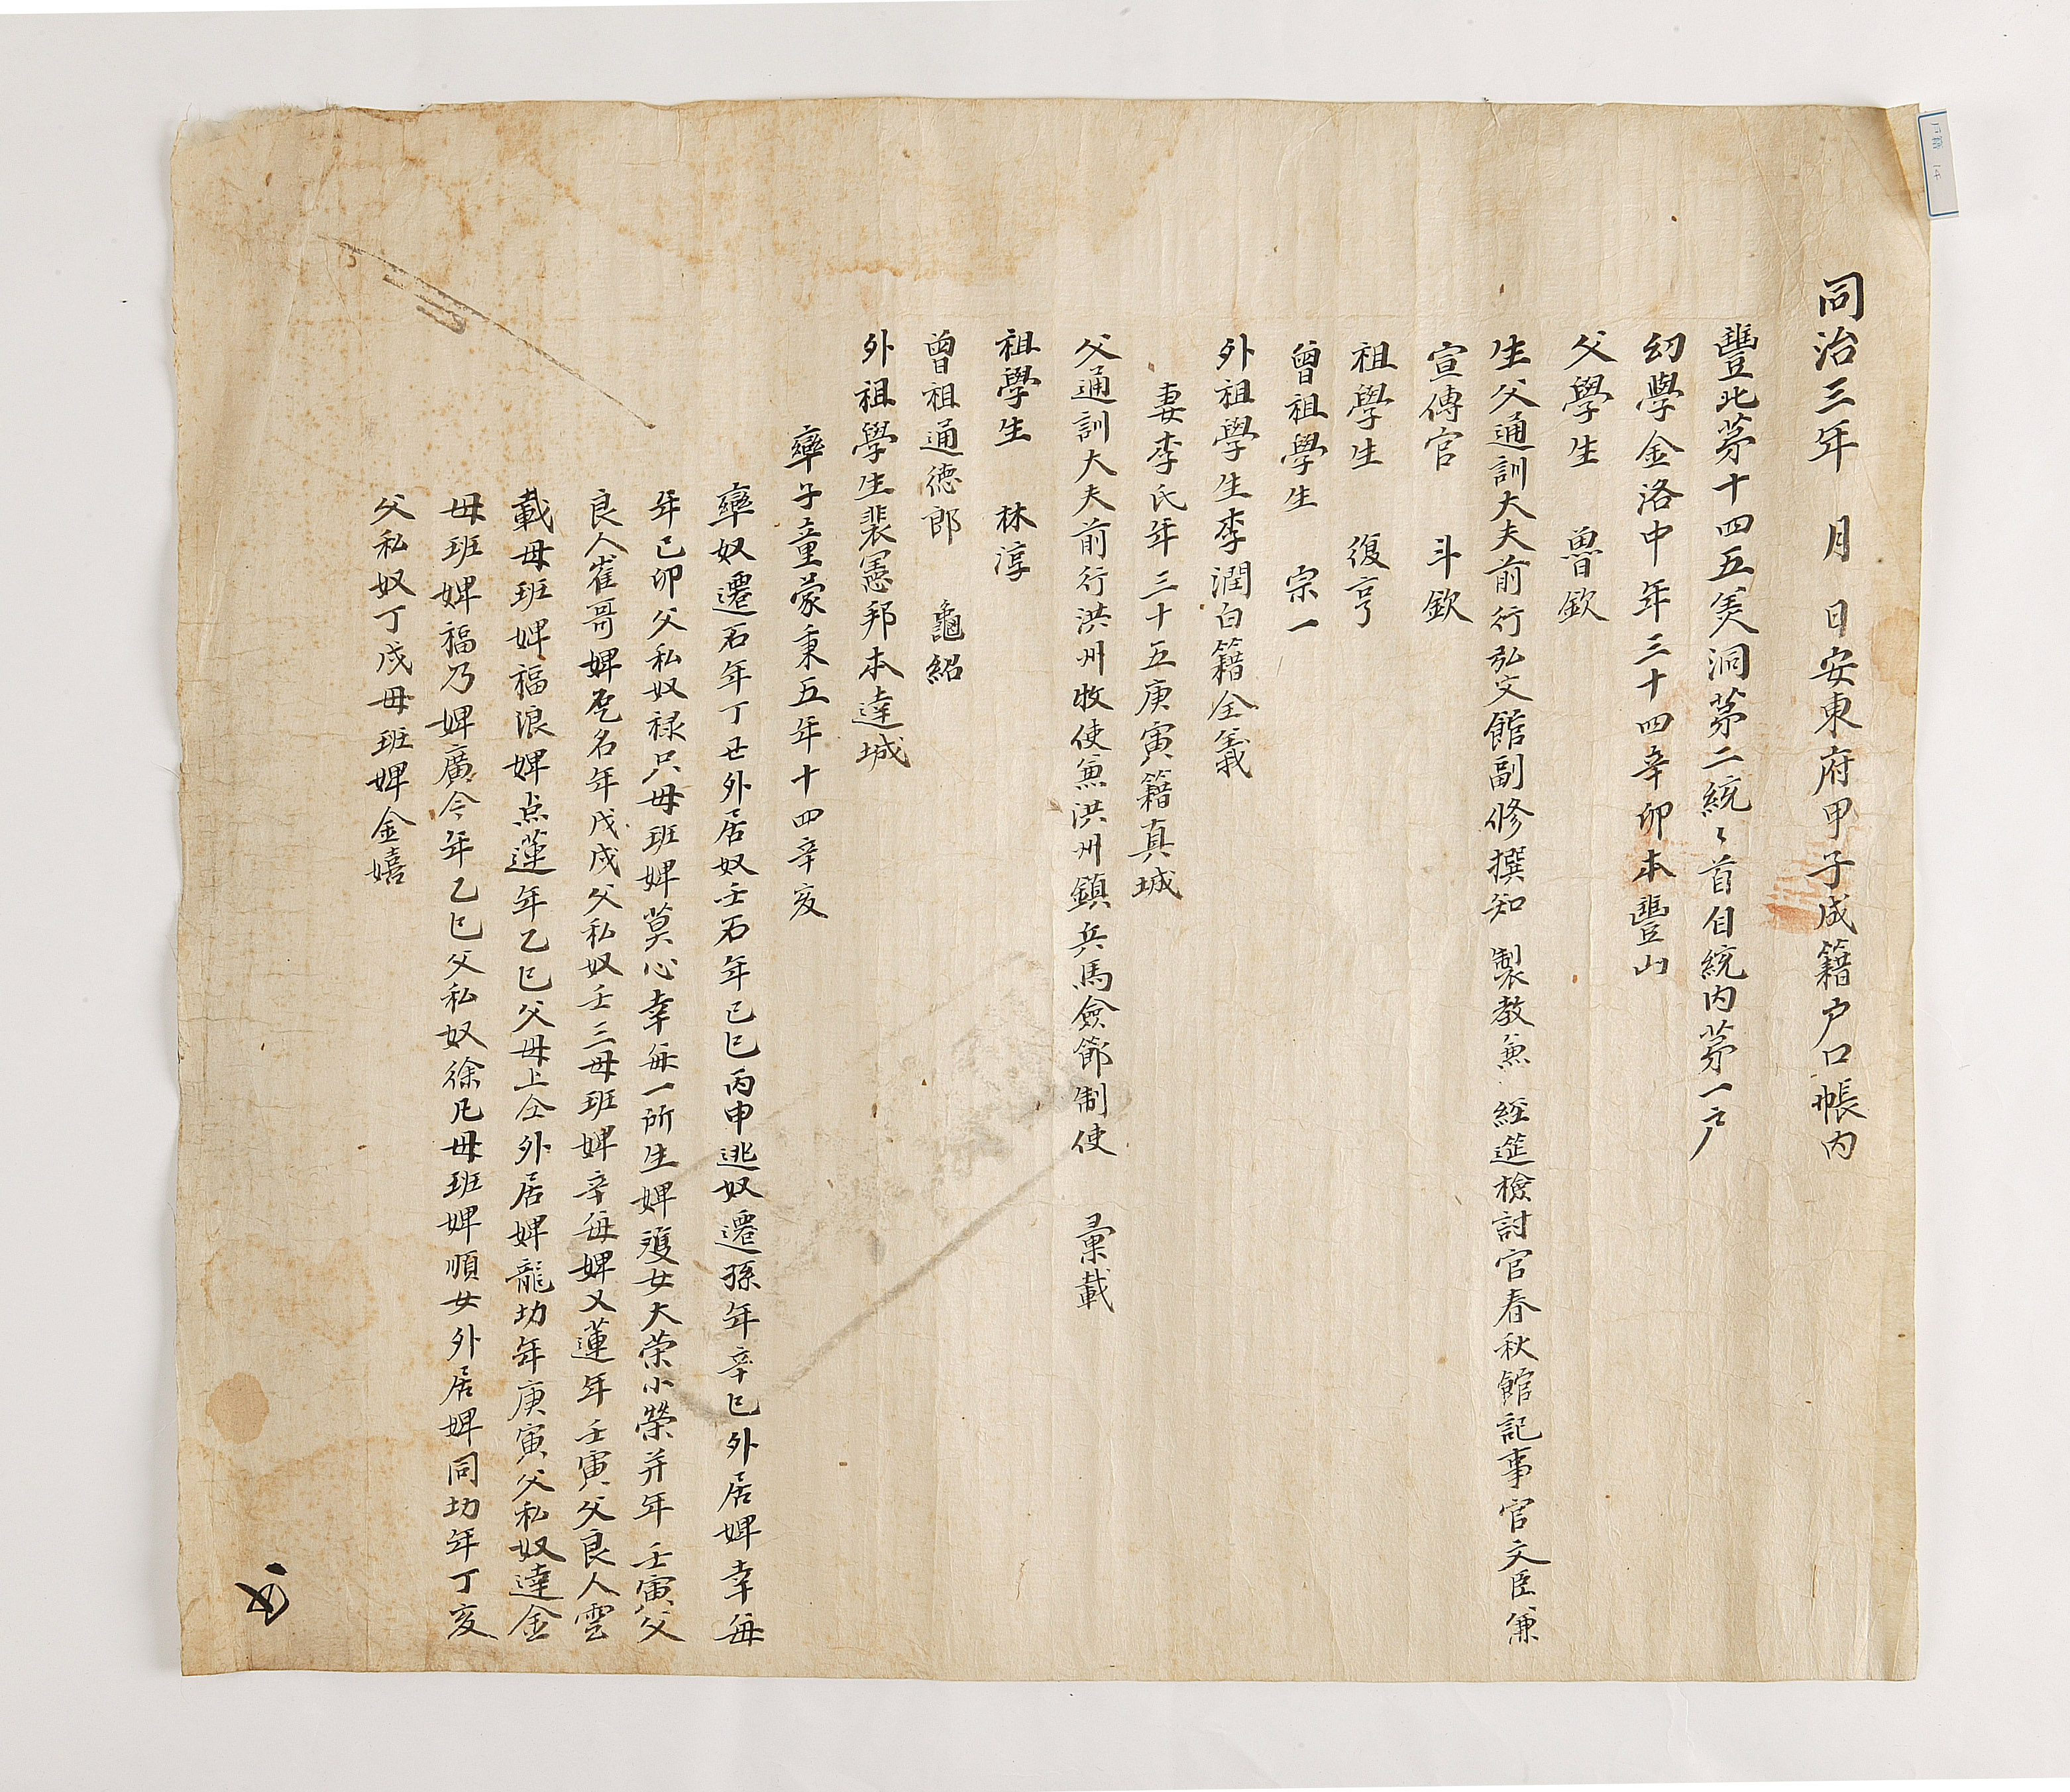 同治三年 月 日安東府甲子成籍戶口帳内
豐北苐十四五美洞苐二統〻首自統内苐一戶
幼學金洛中年三十四辛卯本豐山
父學生 魯欽
生父通訓大夫前行弘文館副修撰知 製教兼 經筵檢討官春秋館記事官文臣兼
宣傳官 斗欽
祖學生 復亨
曾祖學生 宗一
外祖學生李潤白籍全義
妻李氏年三十五庚寅籍真城
父通訓大夫前行洪州牧使兼洪州鎮兵馬僉節制使 彙載
祖學生 林淳
曾祖通德郎 龜紹
外祖學生裴憲邦本達城
率子童蒙秉五年十四辛亥
率奴還石年丁丑外居奴壬石年己巳丙申逃奴還孫年辛巳外居婢幸每
年己卯父私奴祿只母班婢莫心幸每一所生婢㺉女大荣小榮并年壬寅父
良人崔哥婢名年戊戌父私奴壬三母班婢辛每婢又蓮年壬寅父良人雲
載母班婢福浪婢点蓮年乙巳父母上仝外居婢龍功年庚寅父私奴達金
母班婢福乃婢廣今年乙巳父私奴徐凡母班婢順女外居婢同功年丁亥
父私奴丁戌母班婢金嬉